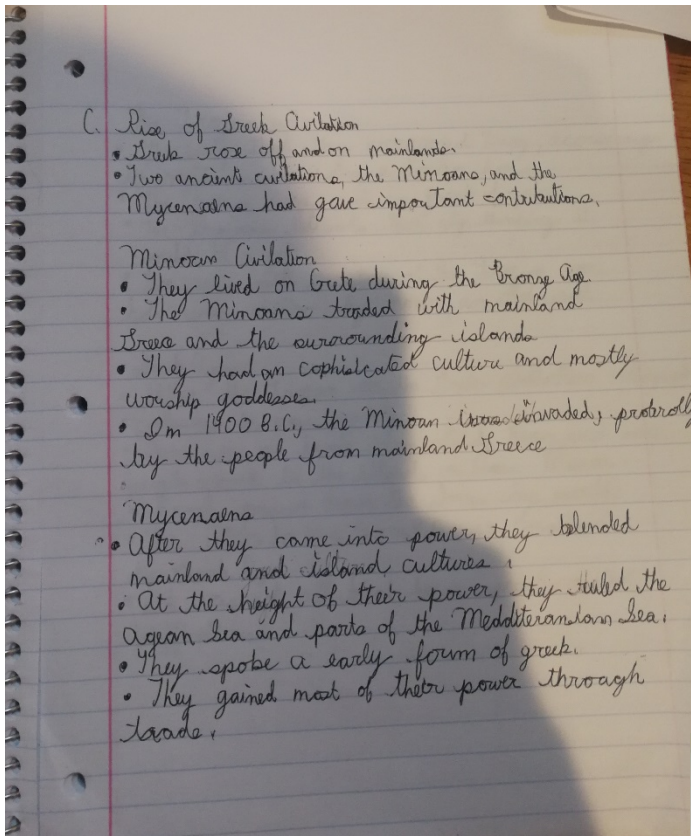 C. Rise of Greek Civilation
• Greek rose off and on mainlands.
• Two ancient civilations, the Minoans, and the
Mycenaens had gave important contributions.
Minoan Civilation
• They lived on Crete during the Bronze Age.
• The Minoans traded with mainland
Greece and the surrounding islands
• They had an cophisicated culture and mostly
worship goddesses.
• In 1400 B.C., the Minoan invaded, protorolly
by the people from mainland Greece
Mycenaens
• After they came into power, they blended
mainland and island cultures.
• At the height of their power, they ruled the
Agean Sea and parts of the Medditerandan Sea.
• They spoke a early form of greek.
• They gained most of their power through
trade.